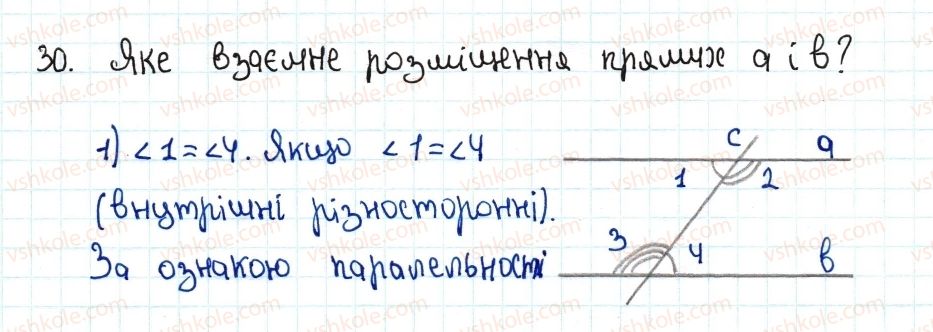 30. Яке взаємне розміщення прямих а і в?
1) <1=<4. Якщо <1=<4
(внутрішні різносторонні).
За ознакою паралельності
с а
1 2
3 4 в